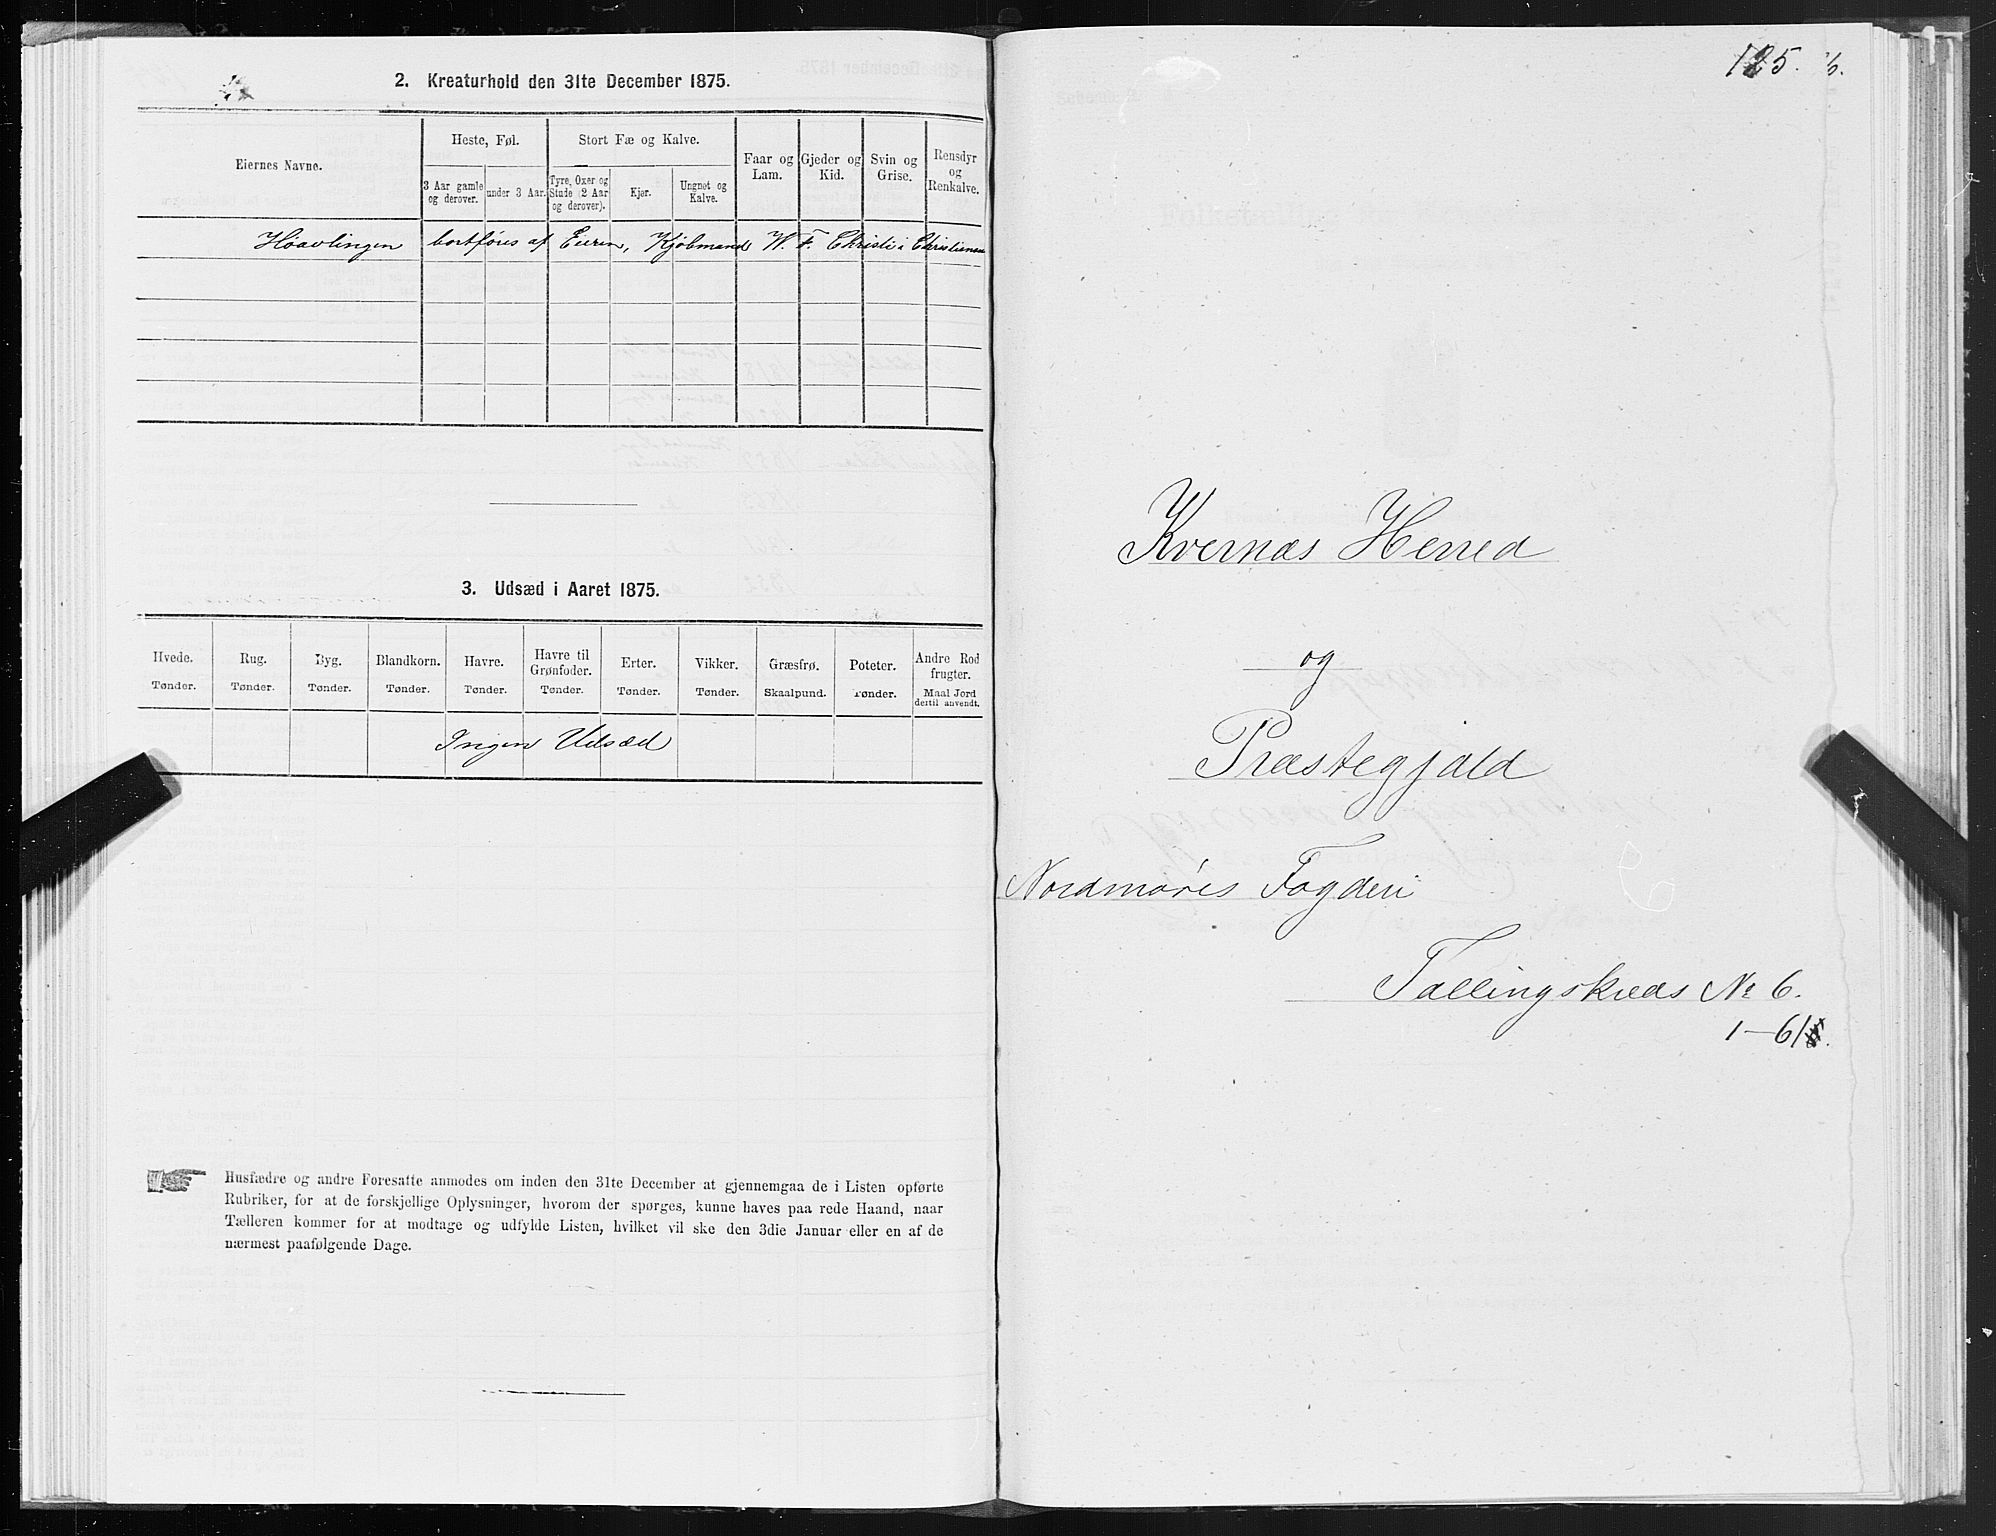 2. Kreaturhold den 31te December 1875.
Eiernes Navne.
Heste, Føl.
Stort Fæ og Kalve.
Faar og Lam.
Gjeder og Kid.
Svin og Grise.
Rensdyr og Renkalve.
3 Aar gamle og derover.
under 3 Aar.
Tyre, Oxer og Stude (2 Aar og derover).
Kjør.
Ungnøt og Kalve.
Høavlingen bortføres af Eieren, Kjøbmand W. F. Christi i Christiansu
3. Udsæd i Aaret 1875.
Hvede. Rug. Byg. Blandkorn. Havre. Havre til Grønfoder. Erter. Vikker. Græsfrø. Poteter. Andre Rodfrugter.
Tønder. Tønder. Tønder. Tønder. Tønder. Tønder. Tønder. Tønder. Skaalpund. Tønder. Maal Jord dertil anvendt.
Ingen Udsæd
Husfædre og andre Foresatte anmodes om inden den 31te December at gjennemgaa de i Listen opførte
Rubriker, for at de forskjellige Oplysninger, hvorom der spørges, kunne haves paa rede Haand, naar
Tælleren kommer for at modtage og udfylde Listen, hvilket vil ske den 3die Januar eller en af de
nærmest paafølgende Dage.
125. 6.
Kvernæs Herred
og
Præstegjæld
Nordmøres Fogderi
Tællingskreds № 6.
1-61